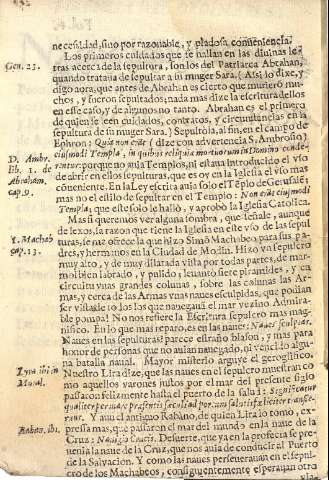 necesidad, sino por razonable, y piadosa conueniencia.
Los primeros cuidados que se hallan en las diuinas le-
Gen. 23.
tras acerca de la sepultura, son los del Patriarca Abrahan,
quando trataua de sepultar a su muger Sara. (Assi lo dize, y
digo aora, que antes de Abrahan es cierto que muriero mu-
chos, y fueron sepultados; nada mas dize la escritura dellos
en este caso, y de algunos no tanto. Abrahan es el primero
de quien se leen cuidados, contratos, y circunstancias en la
sepultura de su muger Sara.) Sepultòla, al fin, en el campo de
Ephron: Quia non este (dize con advertencia S. Ambrosio)
D. Ambr.
lib. 1. de
Abraham,
cap. 9.
eiusmodi Templa, in quibus reliquia mortuorum in Domino conde-
rentur: porque no auia Templos, ni estaua introducido el vso
de abrir en ellos sepulturas, que es oy en la Iglesia el vso mas
cōueniente. En la Ley escrita auia solo el Tēplo de
mas no el estilo de sepultar en el Templo: Non este eiusmodi
Templa; que este solo le hallò, y aprobò la Iglesia Catolica.
Mas si queremos ver alguna sombra, que señale, aunque
de lexos, la razon que tiene la Iglesia en este vso de las sepul-
1. Machab
cap. 13.
turas, se nos ofrece la que hizo Simō Machabeo para sus pa-
dres, y hermanos en la Ciudad de Modin. Hizo vn sepulcro
muy alto, y de muy dilatada vista por todas partes, de mar-
mol bien labrado, y pulido; leuantò siete piramides, y en
circuitu vnas grandes colunas, sobre las colunas las Ar-
mas, y cerca de las Armas vnas naues esculpidas, que podian
ser vistas de todos los que nauegauā el mar vezino. Admira-
ble pompa! No nos refiere la Escritura sepulcro mas mag-
nifico. En lo que mas reparo, es en las naues: Naues sculptas.
Naues en las sepulturas? parece estraño blason, y mas para
honor de personas que no auian nauegado, ni vencido algu-
na batalla naual. Mayor misterio arguye el geroglifico.
Lyra ibi in
Moral.
Nuestro Lira dize, que las naues en el sepulcro muestran co-
mo aquellos varones justos por el mar del presente siglo
passaron felizmente hasta el puerto de la salud: Significatur
qualiter per mare presentis saeculi ad portum salutis feliciter transie-
runt. Y aun el antiguo Rabano, de quien Lira lo tomò, ex-
Raban. ibi.
pressa mas, que passaron el mar del mundo en la naue de la
Cruz: Nauigio Crucis. De suerte, que ya en la profecia se pre-
uenia la naue de la Cruz, que nos auia de conducir al Puerto
de la Salvacion. Y como las naues perseueran en el sepul-
cro de los Machabeos, consiguientemente esperan otro